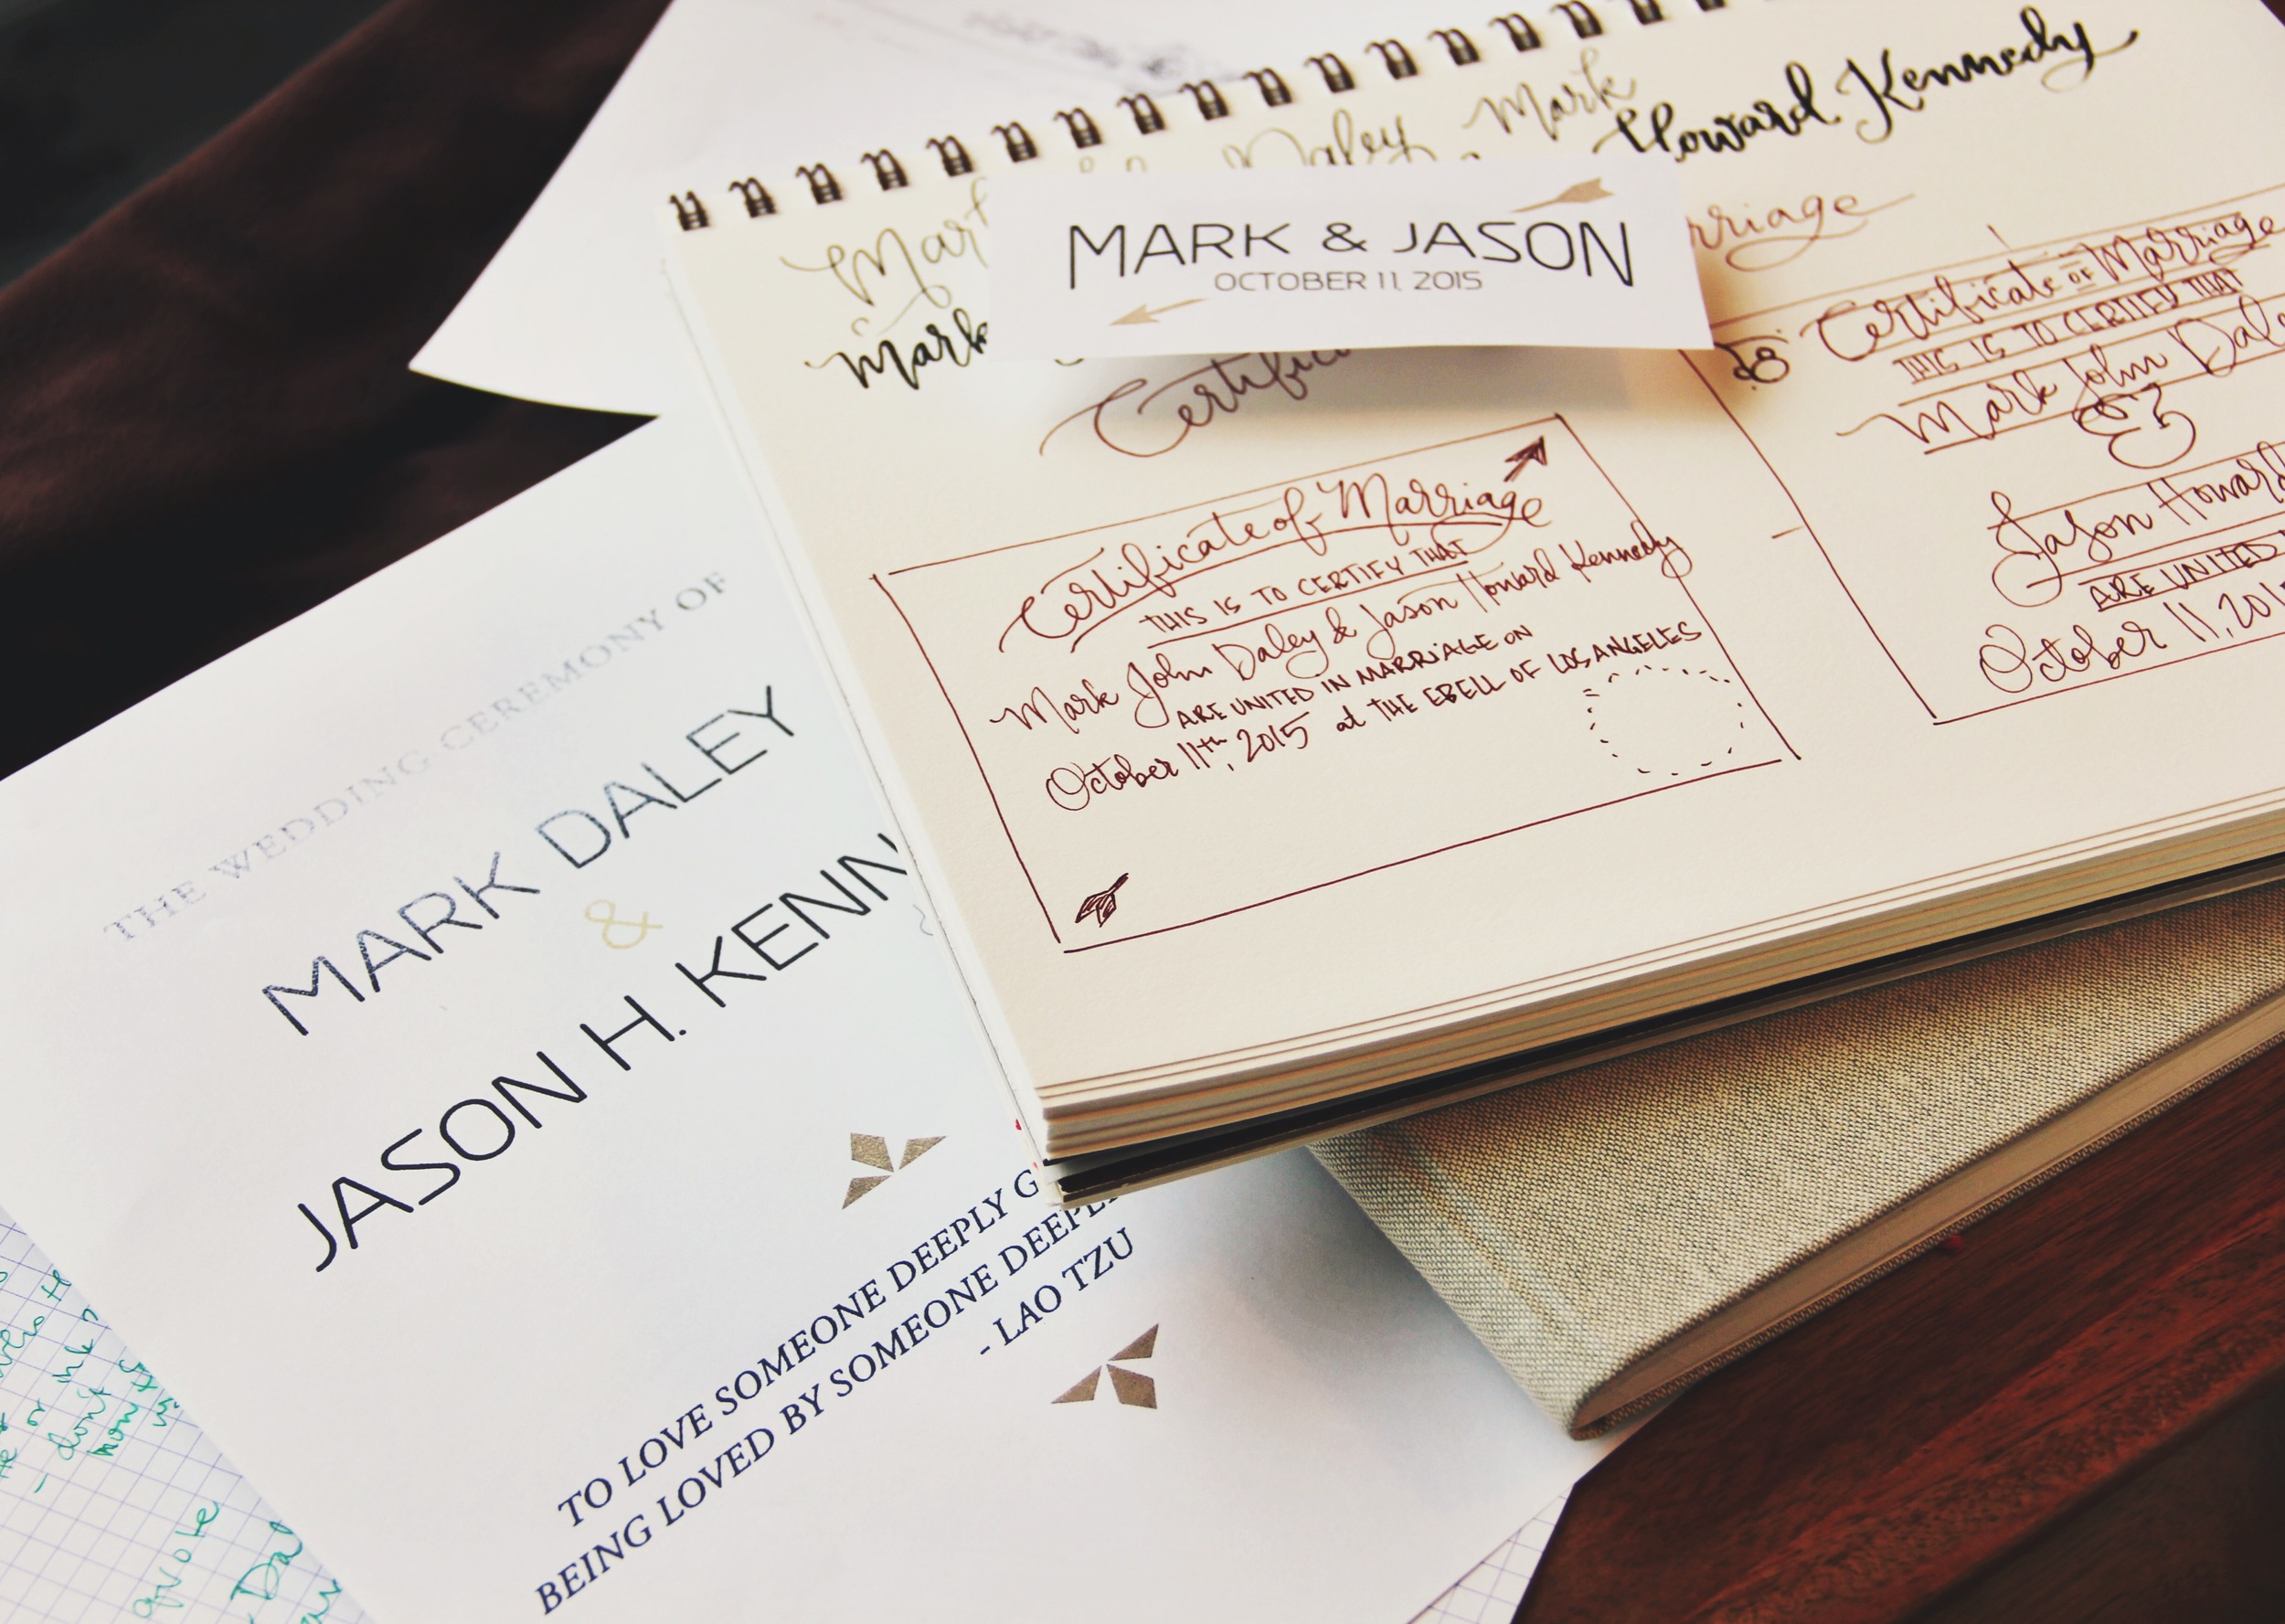 Howard Kennedy
Daley Mark
Mark
MARK & JASON
OCTOBER 11, 2015
Certificate of Marriage
THIS IS TO CERTIFY THAT
Mark John Daley & Jason Howard Kennedy
ARE UNITED IN MARRIAGE ON
October 11th, 2015 at THE EBELL OF LOS ANGELES
Certificate OF Marriage
THIS IS TO CERTIFY THAT
Mark John
&
Jason
ARE UNITED
October 11,
THE WEDDING CEREMONY OF
MARK DALEY
&
JASON H.
TO LOVE SOMEONE DEEPLY
BEING LOVED BY SOMEONE
- LAO TZU
or
- don't
quote